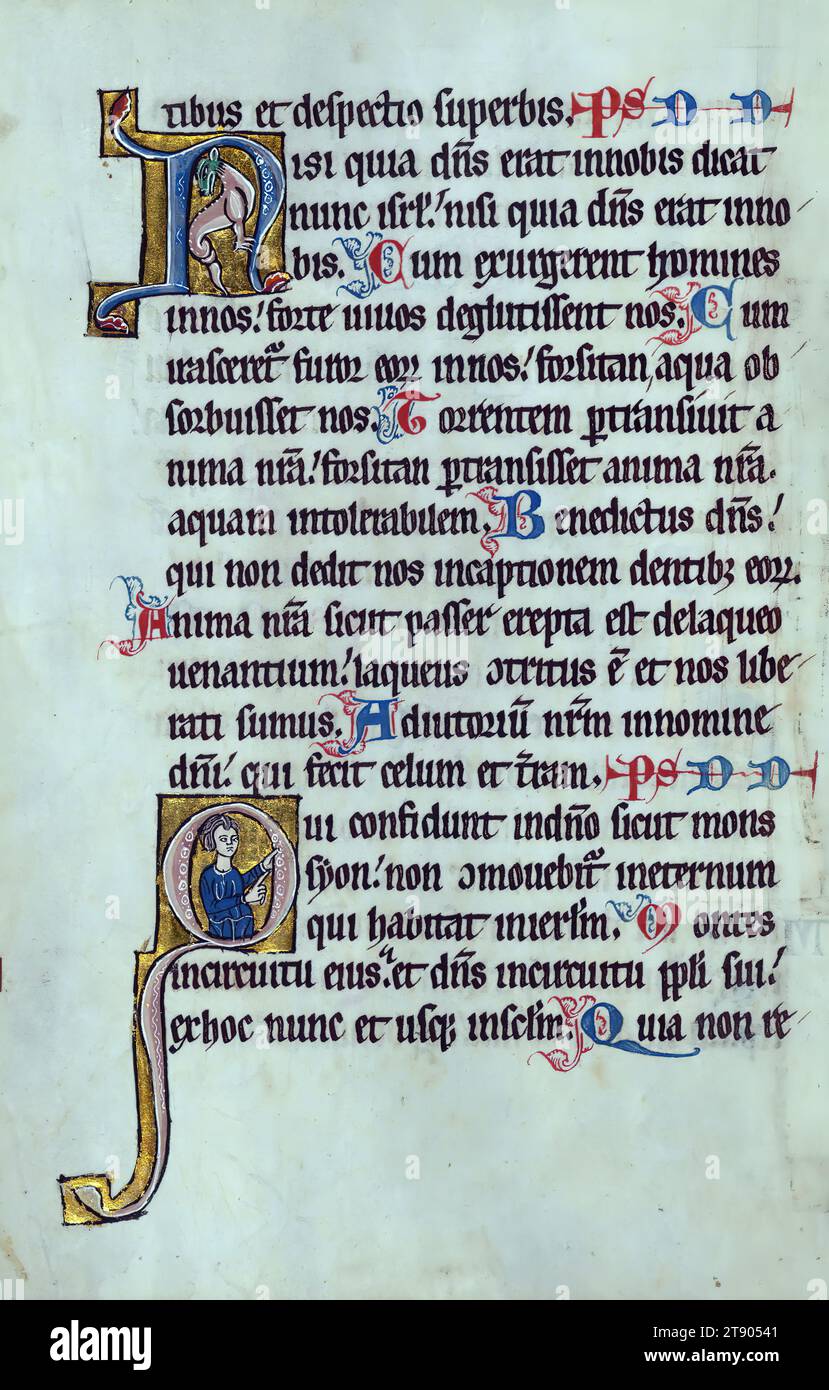 tibus et despectio superbis. PS D D
Nisi quia dn̄s erat innobis dicat
nunc isrl̄.' nisi quia dn̄s erat inno
bis. Cum exurgerent homines
innos.' forte uiuos deglutissent nos. Cum
irasceret᷑ furor eoꝝ innos.' forsitan aqua ob
sorbuisset nos. Torrentem ꝑtransiuit a
nima nr̄a.' forsitan ꝑtransisset anima nr̄a.
aquam intolerabilem. Benedictus dn̄s.'
qui non dedit nos incaptionem dentibꝫ eoꝝ.
Anima nr̄a sicut passer erepta est delaqueo
uenantium.' laqueus ꝯtritus ē et nos libe
rati sumus. Adiutoriū nr̄m innomine
dn̄i.' qui fecit celum et t̄ram. PS D D
Qui confidunt indn̄o sicut mons
syon.' non ꝯmouebit᷑ ineternum
qui habitat inierl̄m. Montes
incircuitu eius.' et dn̄s incircuitu ppl̄i sui.'
exhoc nunc et usqꝫ inscl̄m. Quia non re
alamy
Image ID: 2T90541
www.alamy.com